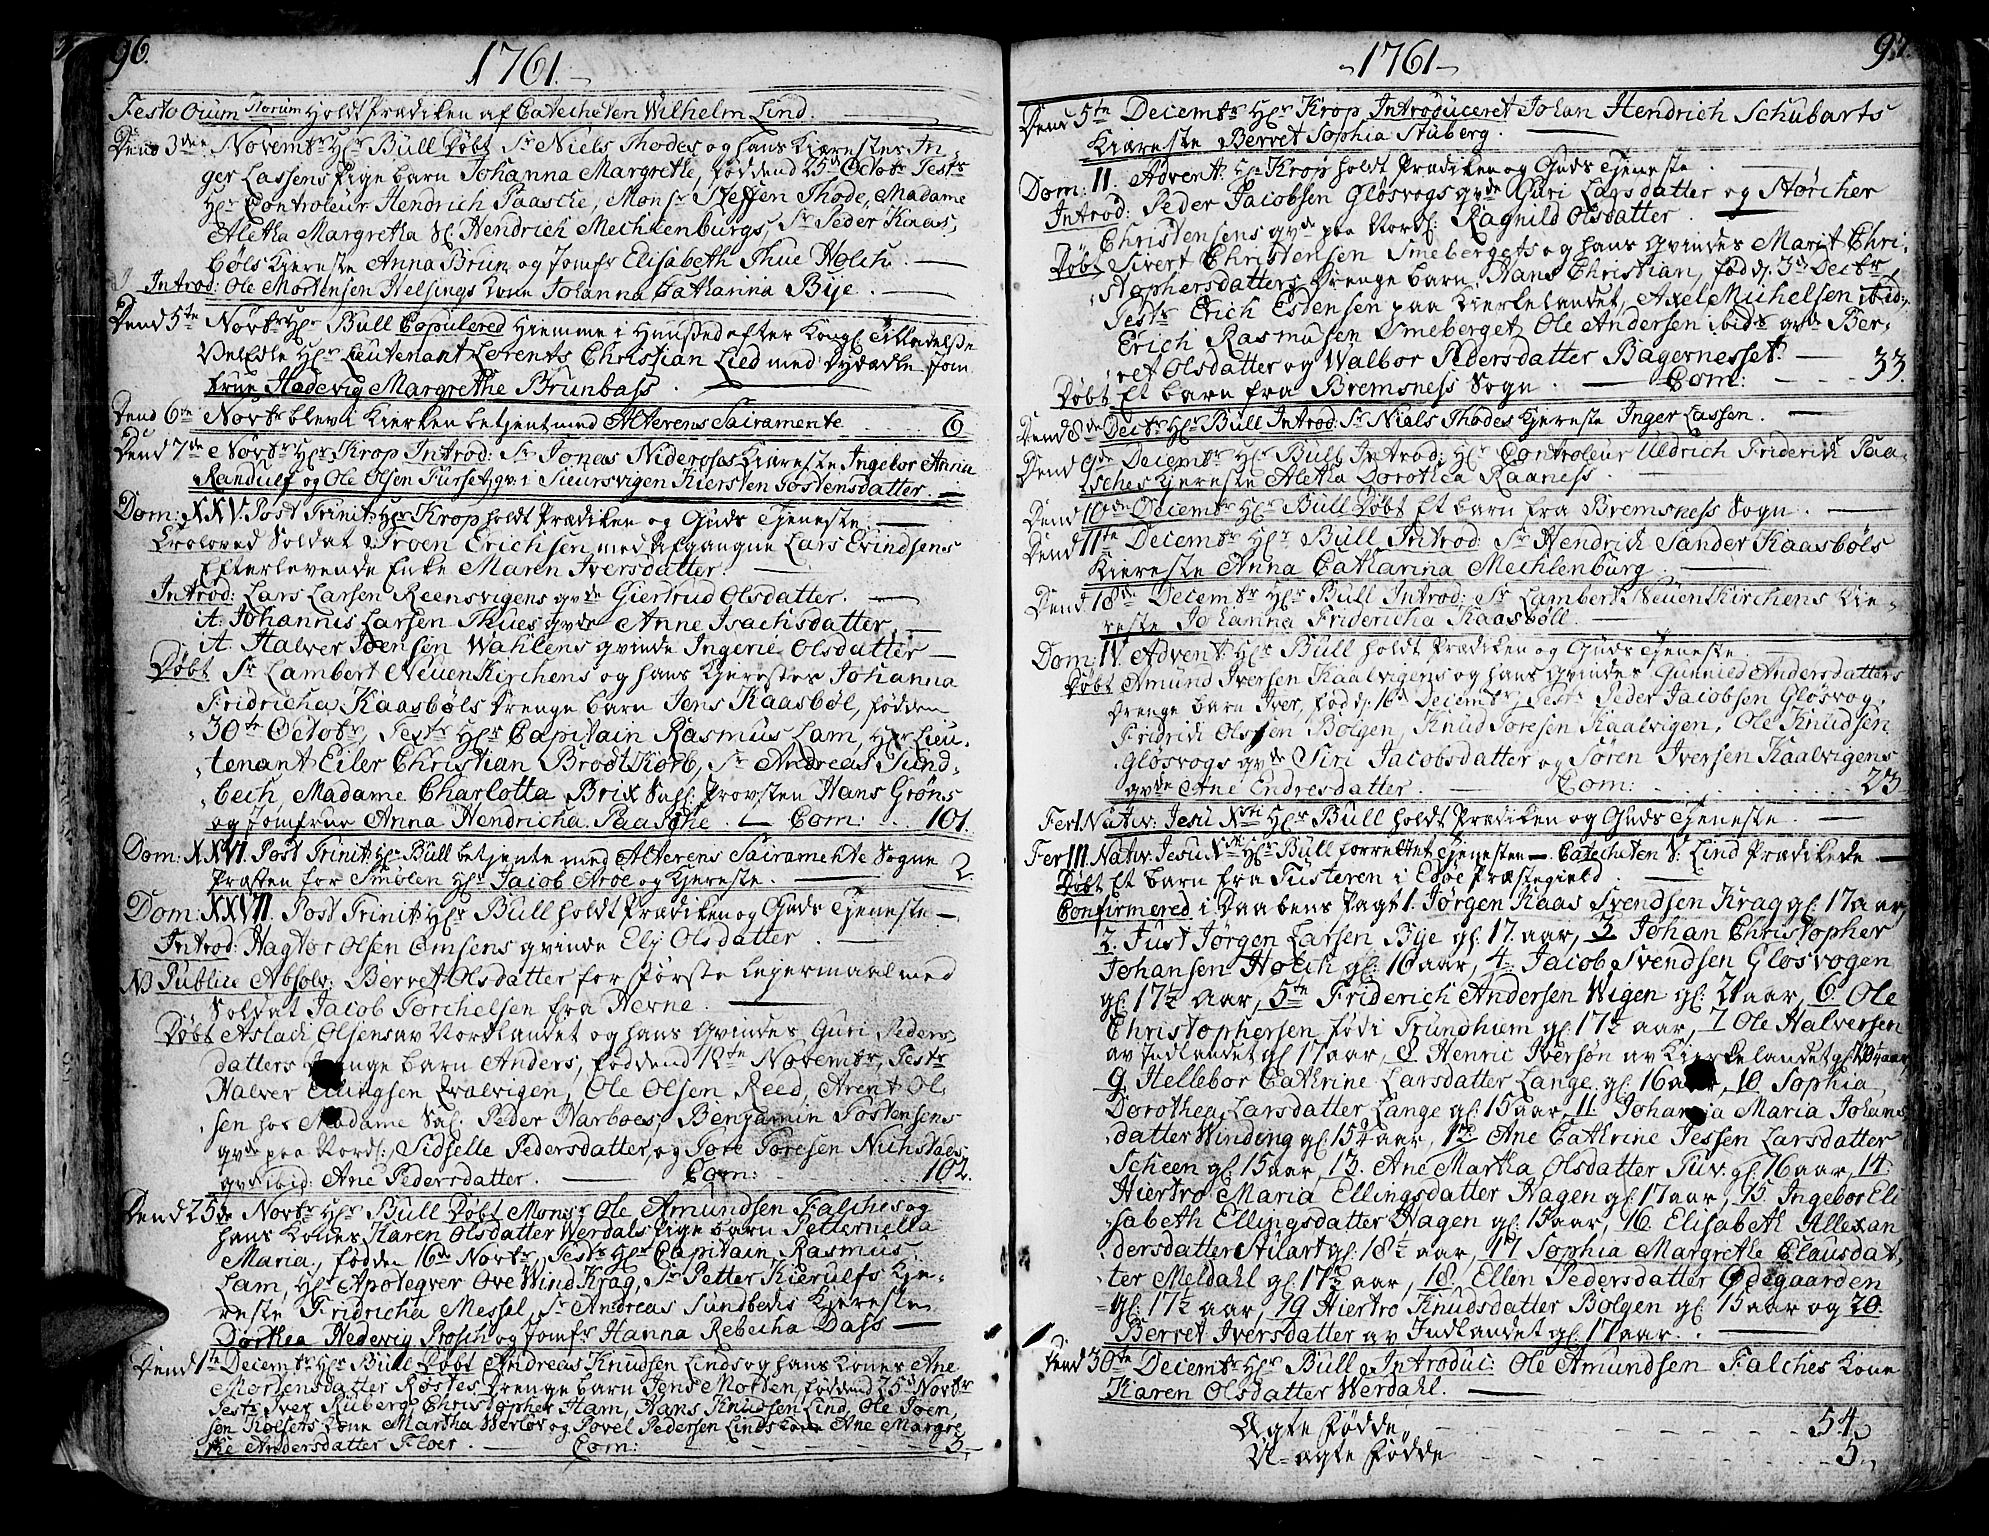 96.
1761.
Festo Oium Storum Holdt Prædiken af Catecheten Wilhelm Lind.
Dend 3die Novembr Hr Bull Døbt Sr Niels Thodes og hans Kiærestes In-
ger Lassens Pige barn Johanna Margrethe, fød dend 25de Octobr Testr
Hr Controleur Hendrich Paasche, Monsr Steffen Thode, Madame
Aletha Margretha Sl. Hendrich Mechlenburgs, Sr Peder Kaas-
bøls Kiereste Anna Brun og Jomfr Elisabeth Thue Holch.
Introd: Ole Mortensen Helsings Kone Johanna Catharina Bye.
Dend 5te Novbr Hr Bull Copulered Hiemme i Hussed efter Kongl. Tilladelse
Velædle Hr Lieutenant Lorents Christian Lied med Dydædle Jom-
frue Hedevig Margrethe Brunbass.
Dend 6te Novbr blev i Kierken betjent med Alterens Sacramente 6
Dend 7de Novbr Hr Krop Introd. Sr Jonas Niderøsas Kiæreste Ingebor Anna
Randulf og Ole Olsen Furset, gv. i Sieursvigen Kiersten Tostensdatter.
Dom: XXV. Post Trinit: Hr Krop holdt Prædiken og Guds Tjeneste.
Troloved Soldat Troen Erichsen med Afgangne Lars Evindsens
Efterlevende Enke Maren Iversdatter.
Introd: Lars Larsen Reensvigens gvde Giertrud Olsdatter.
it. Johannis Larsen Thues gvde Anne Isachsdatter,
it. Halver Joensøn Wahlens gvinde Ingerie Olsdatter
Døbt Sr Lambert Neuen Kirchens og hans Kjerestes Johanna
Fridricha Kaasbøls Drenge barn Jens Kaasbøl, fødden
30te Octobr, Testr Hr Capitain Rasmus Lam, Hr Lieu-
tenant Eiler Christian Brodtkorb, Sr Andreas Sund-
bech, Madame Charlotta Brix Sal. Provsten Hans Grøns
og Jomfrue Anna Hendricha Paasche. Com: 101.
Dom: XXVI. Post Trinit: Hr Bull betjente med Alterens Sacramente Sogne
Præsten for Smølen Hr Jacob Aroe og Kjereste. 2.
Dom: XXVII. Post Trinit: Hr Bull holdt Prædiken og Guds Tjeneste
Introd: Hagtor Olsen Omsens gvinde Elj Olsdatter.
N Publice Absolv: Berret Olsdatter for første Lejermaal med
Soldat Jacob Torchelsen fra Hevne.
Døbt Aslach Olsens av Nordlandet og hans Gvindes Guri Peders-
datters Drenge barn Anders, fød dend 12te Novembr, Testr
Halver Ellingsen Qvalvigen, Ole Olsen Reed, Arent Ol-
sen hos Madame Sal. Peder Harboes, Benjamin Tostensens
gvde paa Nordl: Sidselle Pedersdatter, og Tore Toresen Nichstads
gvde ibid: Ane Pedersdatter. Com: 102.
Dend 25de Novbr Hr Bull Døbt Monsr Ole Amundsen Falches og
hans Kones Karen Olsdatter Werdals Pige barn Petternella
Maria, fødden 16de Novbr, Testr Hr Capitain Rasmus
Lam, Hr Apotegver Ove Wind Krag, Sr Petter Kierulfs Kje-
reste Fridricha Messel, Sr Andreas Sundbechs Kjereste
Dorthea Hedevig Prosch og Jomfr Hanna Rebecha Dass
Dend 1te Decembr Hr Bull Døbt Andreas Knudsen Linds og hans Kones Ane
Mortensdatter Røstes Drenge barn Jens Morten, fød dend 25de Novbr
Testr Iver Ruberg, Christopher Ham, Hans Knudsen Lind, Ole Joen-
sen Kolsets Kone Martha Werløv og Povel Pedersen Linds Kone Ane Margre-
the Andersdatter Floer. Com: 3.
97.
1761
Dend 5te Decembr Hr Krop Introduceret Johan Hendrich Schubarts
Kiæreste Berret Sophia Stuberg.
Dom: II. Advent: Hr Krop holdt Prædiken og Guds Tjeneste
Introd: Peder Jacobsen Gløsvogs gvde Guri Larsdatter og Størcher
Christensens gvde paa Nordl. Ragnild Olsdatter.
Døbt Sivert Christensen Smebergets og hans Gvindes Marit Chri-
stophersdatters Drenge barn Hans Christian, fød d. 3de Decbr
Testr Erich Estensen paa Kierkelandet, Axel Michelsen ibid,
Erich Rasmusen Smeberget, Ole Andersen ibids gvde Ber-
ret Olsdatter og Walbor Pedersdatter Bagernesset.
Døbt Et barn fra Bremsness Sogn. Com: 33.
Dend 8de Decbr Hr Bull Introd. Sr Niels Thodes Kjereste Inger Lassen.
Dend 9de Decembr Hr Bull Introd: Hr Controleur Uldrich Friderich Paa-
sches Kjereste Aletha Dorothea Raaness.
Dend 10de Decembr Hr Bull Døbt Et barn fra Bremsness Sogn.
Dend 11te Decembr Hr Bull Introd Sr Hendrich Sander Kaasbøls
Kiereste Anna Catharina Mechlenburg.
Dend 18de Decembr Hr Bull Introd: Sr Lambert Neuen Kirchens Kie-
reste Johanna Fridericha Kaasbøll.
Dom: IV. Advent: Hr Bull holdt Prædiken og Guds Tjeneste.
Døbt Amund Iversen Kaalvigens og hans Gvindes Gunnild Andersdatters
Drenge barn Iver, fød d. 16de Decembr, Testr Peder Jacobsen Gløsvog,
Fridrich Olsen Bolgen, Knud Toresen Kaalvigen, Ole Knudsen
Gløsvogs gvde Siri Jacobsdatter og Søren Iversen Kaalvigens
gvde Ane Endresdatter. Com: 23
Fer I. Nativ: Jesu Xsti Hr Bull holdt Prædiken og Guds Tjeneste.
Fer III. Nativ: Jesu Xsti Hr Bull forrettet Tjenesten — Catecheten V: Lind Prædikede
Døbt Et barn fra Tusteren i Edøe Præstegield.
Confirmered i Daabens Pagt 1. Jørgen Kaas Svendsen Krag gl. 17 aar,
2. Just Jørgen Larsen Bye gl. 17 aar, 3 Johan Christopher
Johansen Holch gl. 16 aar, 4. Jacob Svendsen Gløsvogen
gl. 17½ aar, 5te Friderich Andersen Wigen gl. 21 aar, 6. Ole
Christophersen, fød i Trundhiem gl. 17½ aar, 7 Ole Halversen
av Indlandet gl. 17 aar, 8 Henric Iversøn av Kierkelandet gl. 20 aar,
9. Hellebor Cathrine Larsdatter Lange gl. 16 aar, 10. Sophia
Dorothea Larsdatter Lange gl. 15 aar, 11. Johanna Maria Johans-
datter Winding gl. 15½ aar, 12 Ane Cathrine Jessen Larsdatter
Scheen gl. 15 aar, 13. Ane Martha Olsdatter Tuv. gl. 16 aar, 14.
Hiertro Maria Ellingsdatter Hagen gl. 17 aar, 15 Ingebor Eli-
sabeth Ellingsdatter Hagen gl. 15 aar, 16 Elisabeth Allexan-
dersdatter Stuart gl. 18½ aar, 17 Sophia Margrethe Clausdat-
ter Meldahl gl. 17½ aar, 18. Ellen Pedersdatter Ødegaarden
gl. 17½ aar, 19 Hiertro Knudsdatter Bolgen gl. 15 aar og 20.
Berret Iversdatter av Indlandet gl. 17 aar.
Dend 30te Decembr Hr Bull Introduc: Ole Amundsen Falches Kone
Karen Olsdatter Werdahl.
Ægte Fødde 54.
U-ægte Fødde 5.